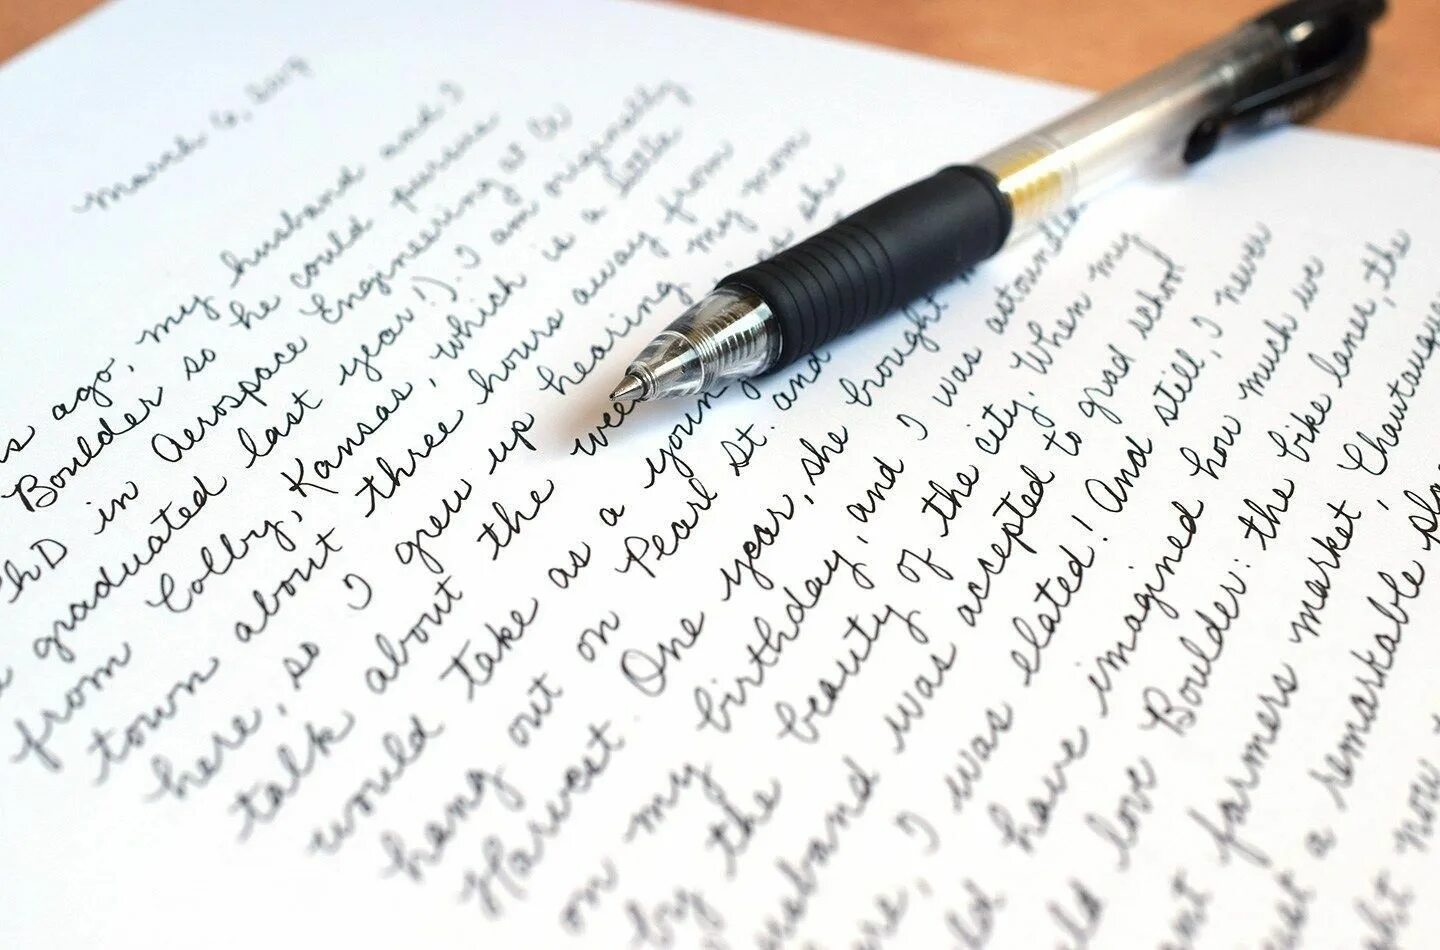 March 6, 2013
ago, my husband and I
Boulder so he could pursue
PhD in Aerospace Engineering at CU
graduated last year!). I am originally
from Colby, Kansas, which is a little
town about three hours away from
here, so I grew up hearing my mom
talk about the she
would take as a young
hang out on Pearl St. and
Harvest. One year, she brought
on my birthday, and I was astounded
by the beauty of the city. When my
husband was accepted to grad school
I was elated! And still, I never
have imagined how much we
love Boulder: the bike lanes, the
farmers market, Chautauqua
a remarkable
now